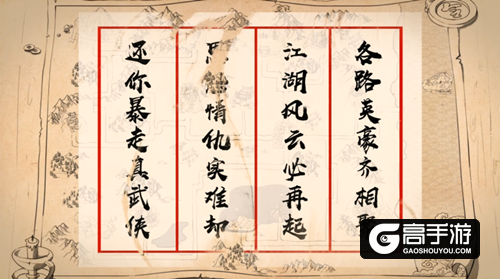 各路英豪齐相聚
江湖风云必再起
恩怨情仇实难却
还你暴走真武侠
高手游
GAOSHOUYOU.COM